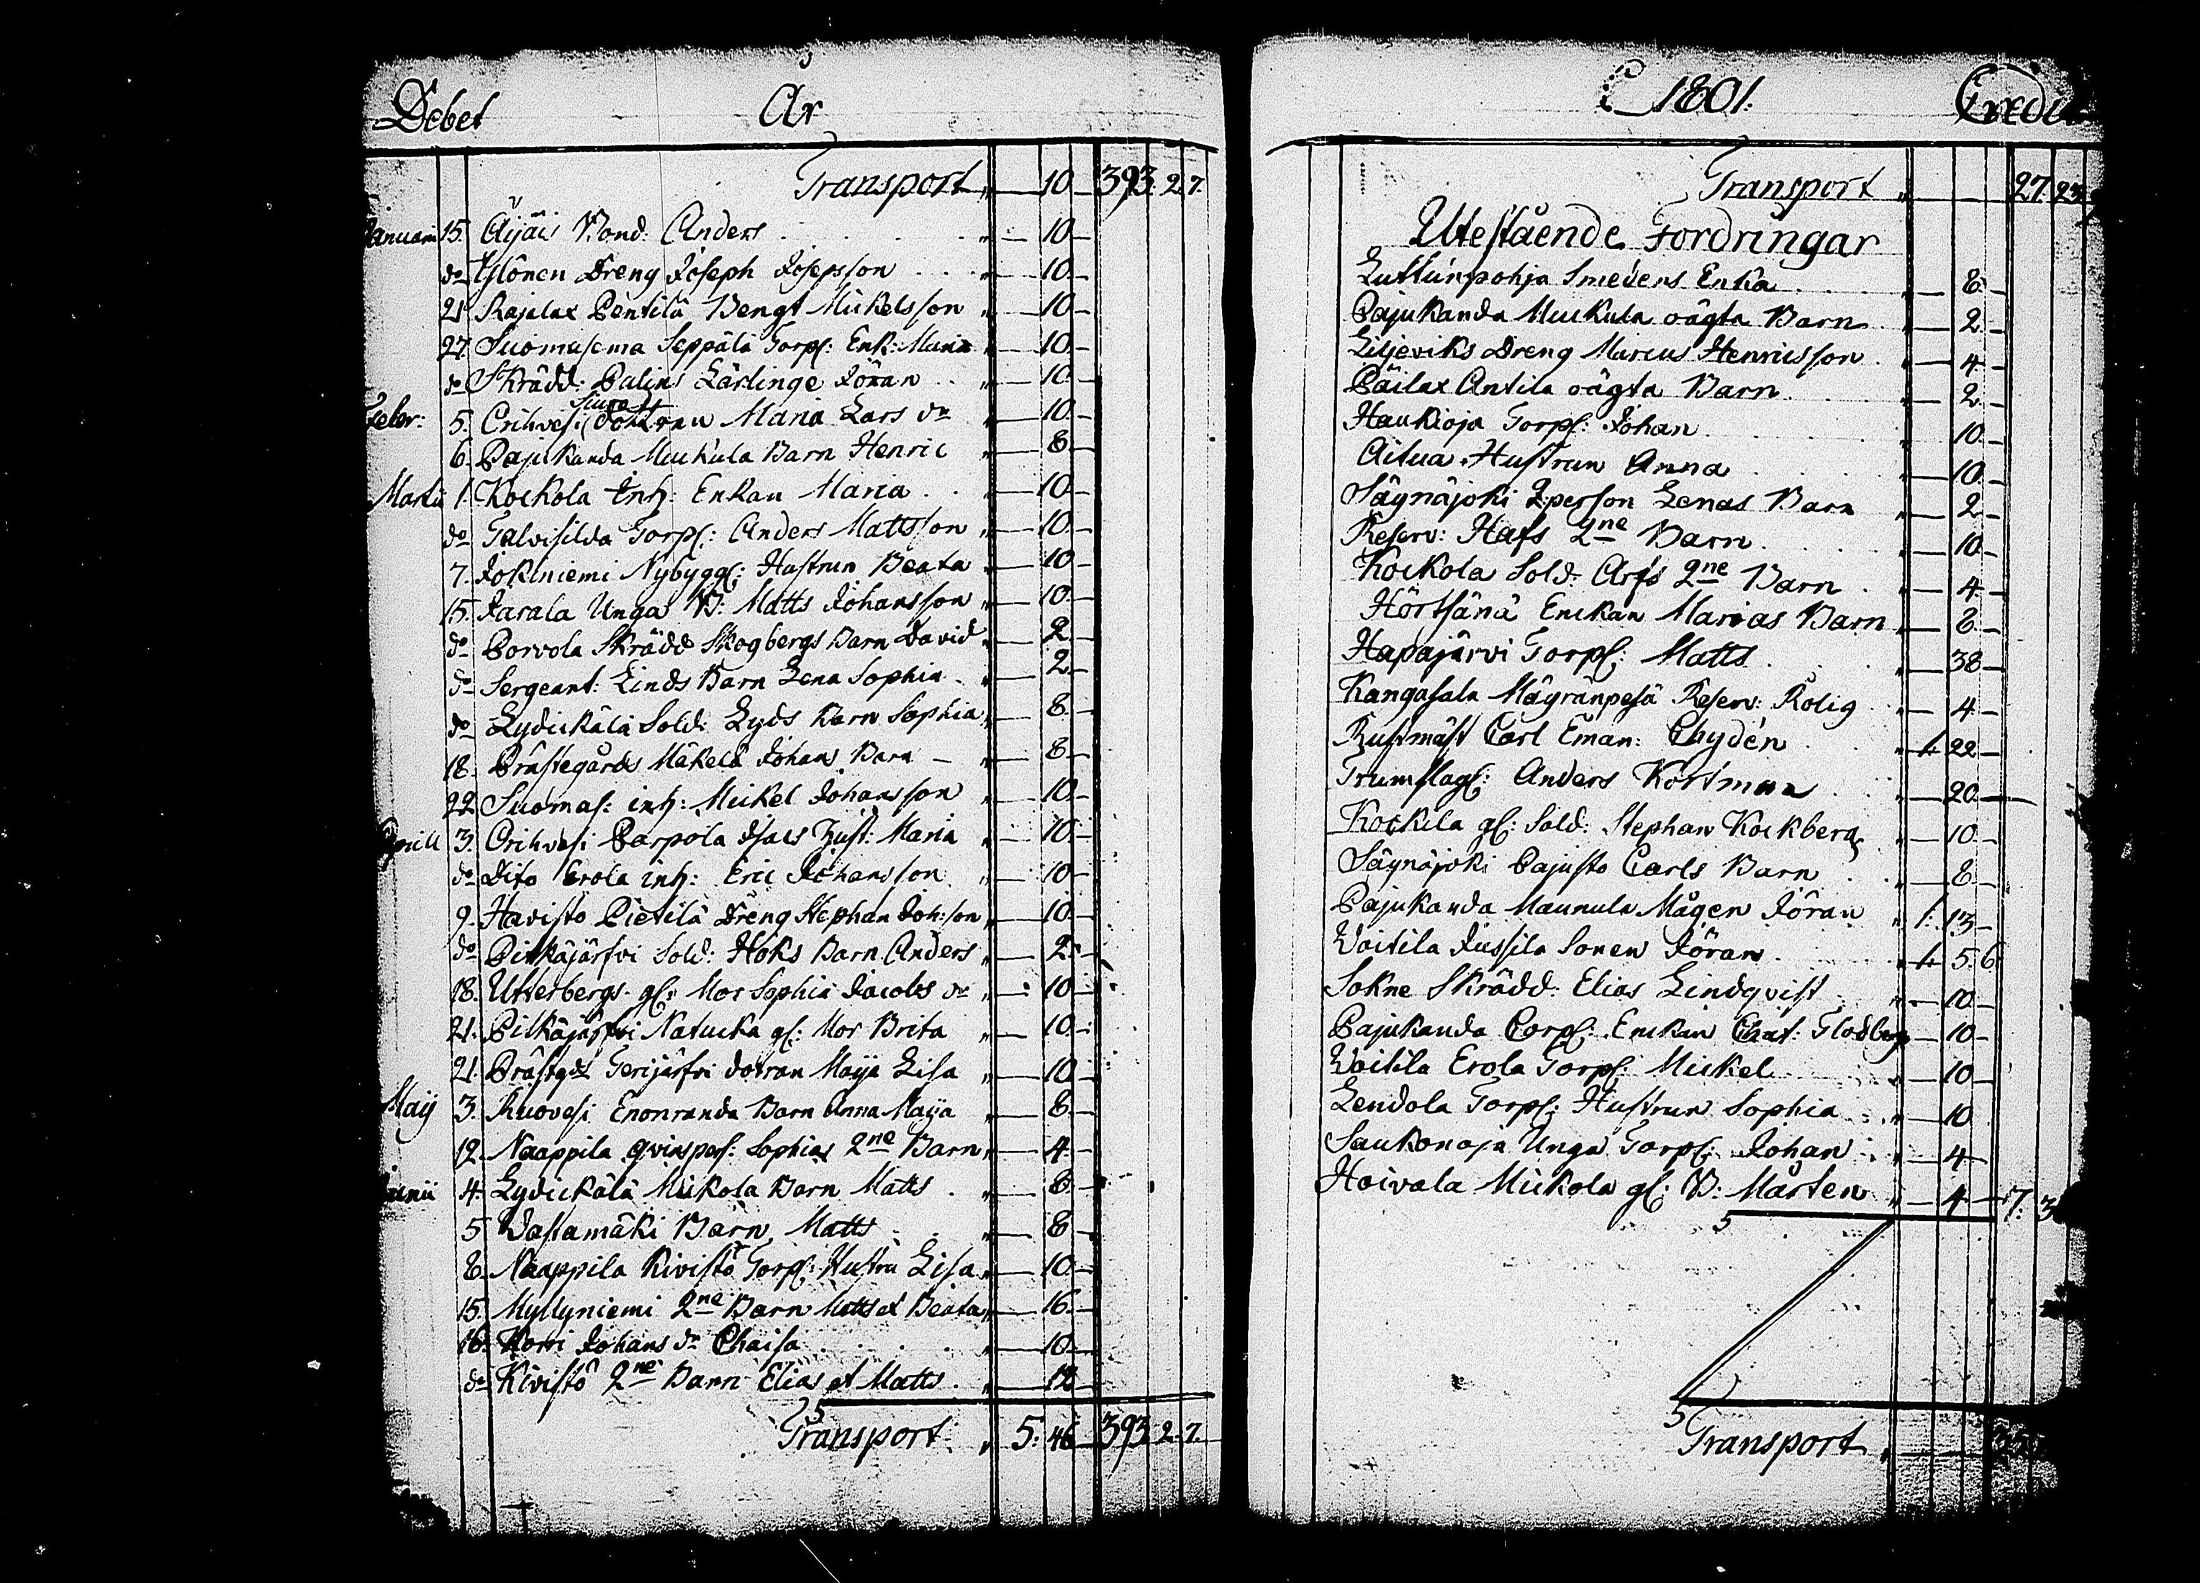 Debet År
Transport " — 10 — 393. 2. 7.
Januari 15. Äijäis Bond: Anders " — 10 —
do Ylönen Dreng Joseph Josepsson " — 10 —
21 Rajalax Pentilä Bengt Mickelsson " — 10 —
27. Suomasema Seppälä Torp: Enk: Maria " — 10 —
do Skrädd: Palins Lärlinge Jöran " — 10 —
Febr: 5. Orihves: Dottran Maria Lars dr " — 10 —
6. Pajukanda Muckula Barn Henric " — 8 —
Martii 1. Kockola Inh: Enkan Maria " — 10 —
do Talvisilda Torp: Anders Mattsson " — 10 —
7. Jokiniemi Nybygg: Hustrun Beata " — 10 —
15. Jarala Unga B: Matts Johansson " — 10 —
do Porvola Skrädd Skogbergs Barn David " — 2 —
do Sergeant: Linds Barn Lena Sophia " — 2 —
do Lydickälä Sold: Lyds Barn Sophia " — 8 —
18. Prästegårds Mäkelä Johans Barn " — 8 —
22 Suomas: inh: Mickel Johansson " — 10 —
Aprill 3. Orihvesi Parpola Isacs Hust: Maria " — 10 —
do Dito Erola inh: Eric Johansson " — 10 —
9. Havisto Pietilä Dreng Stephan Joh:son " — 10 —
do Pitkäjärfvi Sold: Höks Barn Anders " — 2 —
18. Utterbergs gl: Mor Sophia Jacobs dr " — 10 —
21. Pitkäjärfvi Natucka gl: Mor Brita " — 10 —
21. Prästgds Terijärfvi dotran Maija Lisa " — 10 —
Maij 3. Ruovesi Enonranda Barn Anna Maija " — 8 —
12. Naappila qvinspers: Sophias 2ne Barn " — 4 —
Junii 4. Lydickälä Mickola Barn Matts " — 8 —
5 Vastamäki Barn Matts " — 8 —
8. Naappila Kivistö Torp: Hustru Lisa " — 10 —
15. Myllyniemi 2ne Barn Matts et Beata " — 16 —
16. Korvi Johans dr Chaisa " — 10 —
do Kivistö 2ne Barn Elias et Matts " — 12
Transport " 5: 46 — 393. 2. 7.
1801. Credit
Transport " — 27. 23.
Utestående Fordringar
Luttunpohja Smedens Enka " — 8 —
Pajukanda Muckula oägta Barn " — 2 —
Liljeviks Dreng Marcus Henricsson " — 4 —
Päilax Antila oägta Barn " — 2 —
Haukioja Torp: Johan " — 10 —
Aitua Hustrun Anna " — 10 —
Säynäjoki Qperson Lenas Barn " — 2 —
Reserv: Hafs 2ne Barn " — 10 —
Kockola Sold: Arfs 2ne Barn " — 4 —
Hörtsänä Enckan Marias Barn " — 8 —
Hapajärvi Torp: Matts " — 38 —
Kangasala Mäyränpesä Reserv: Rolig " — 4 —
Rustmäst Carl Eman: Chydén " 1. 22 —
Trumslag: Anders Kortman " — 20 —
Kockila gl: Sold: Stephan Kockberg " — 10 —
Säynäjoki Pajusto Carls Barn " — 8 —
Pajukanda Maunula Mågen Jöran " 1. 13 —
Voitila Jussila Sonen Jöran " 1. 5. 6.
Sokne Skrädd: Elias Lindqvist " — 10 —
Pajukanda Corp: Enckan Chat: Flodberg — 10 —
Voitila Erola Torp: Mickel " — 10 —
Lendola Torp: Hustrun Sophia " — 10
Saukonoja Unga Torp: Johan " — 4 —
Hoivala Mickola gl: B: Mårten " — 4 — 7. 3
Transport "